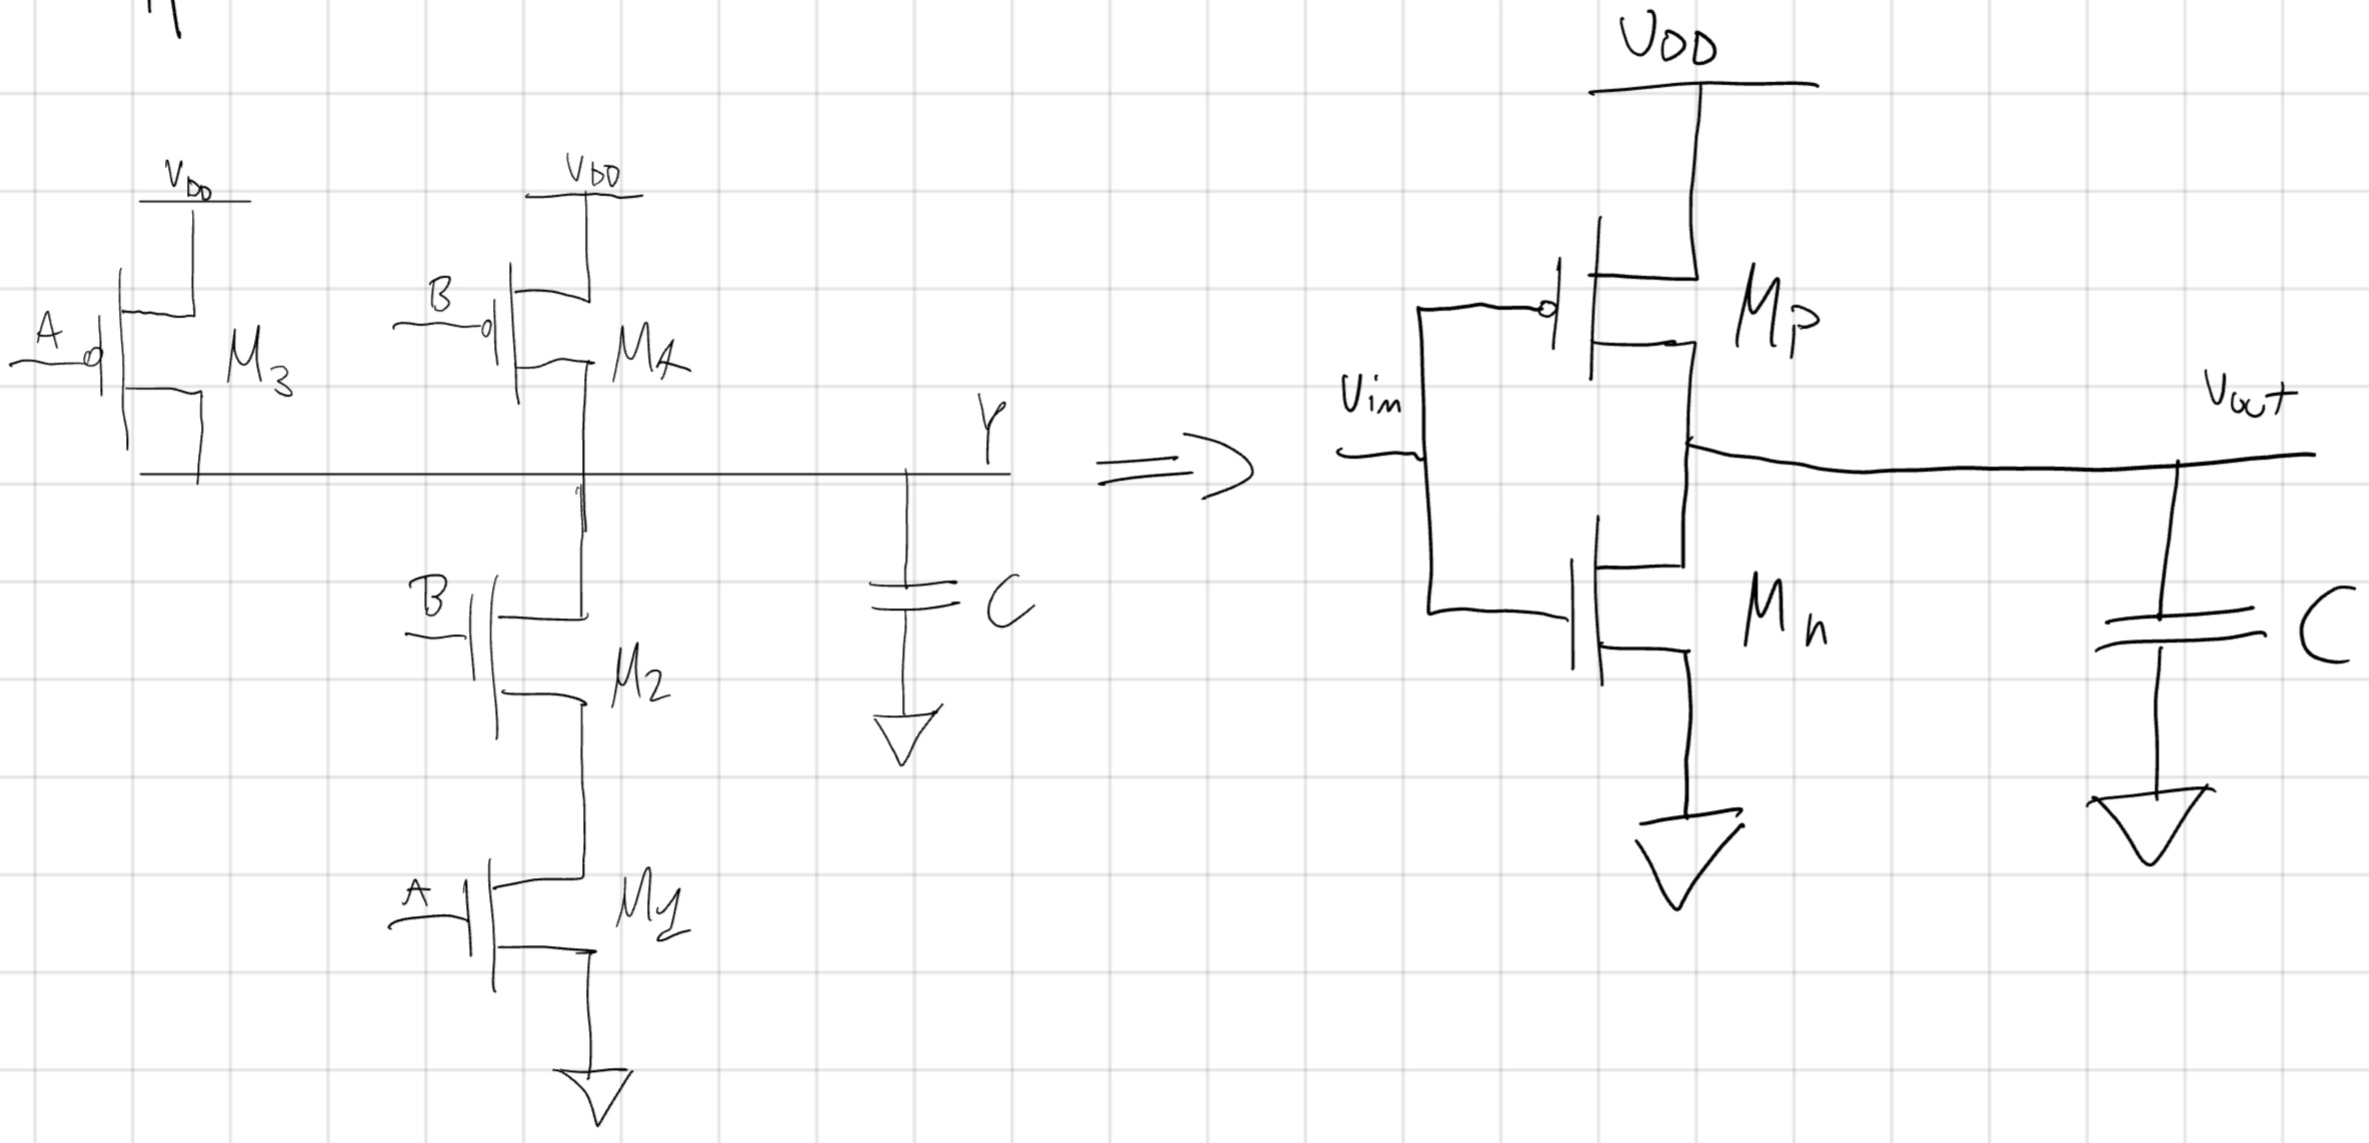 VDD
VDD
A
M3
B
M4
Y
B
M2
C
A
M1
VDD
Mp
Vin
Vout
Mn
C